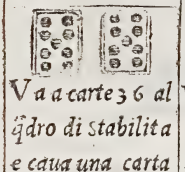 Va a carte 36 al
q̃dro di stabilita
e caua una carta